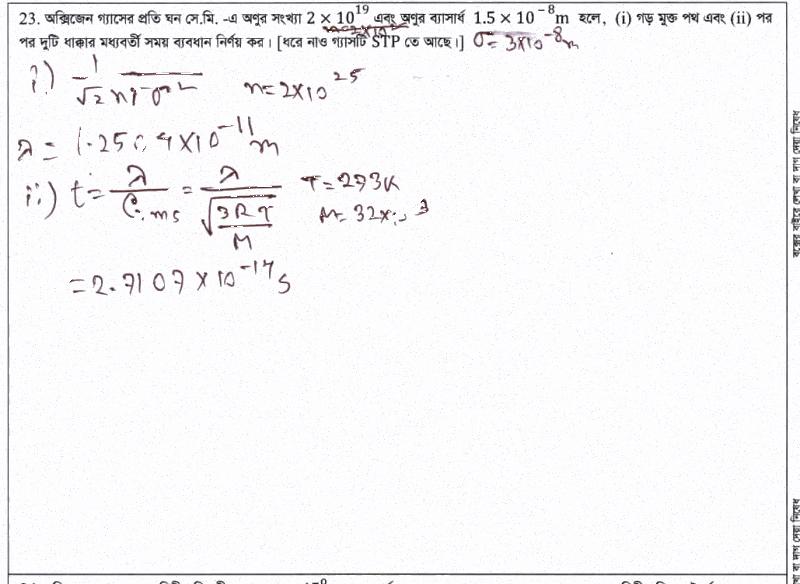 23. অক্সিজেন গ্যাসের প্রতি ঘন সে.মি. -এ অণুর সংখ্যা 2 × 10^19 এবং অণুর ব্যাসার্ধ 1.5 × 10^-8 m হলে, (i) গড় মুক্ত পথ এবং (ii) পর
পর দুটি ধাক্কার মধ্যবর্তী সময় ব্যবধান নির্ণয় কর। [ধরে নাও গ্যাসটি STP তে আছে।] σ = 3×10^-8 m
i) 1/√2 nπσ^2 n=2×10^25
λ = 1.2504×10^-11 m
ii) t = λ/C_rms = λ/√(3RT/M) T=273K
M= 32×10^-3
=2.7107×10^-14 s
বক্সের বাইরে লেখা বা দাগ দেয়া নিষেধ
বা দাগ দেয়া নিষেধ